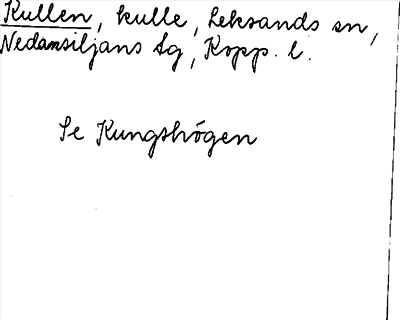 Kullen, kulle, Leksands sn,
Nedansiljans tg, Kopp. l.
Se Kungshögen